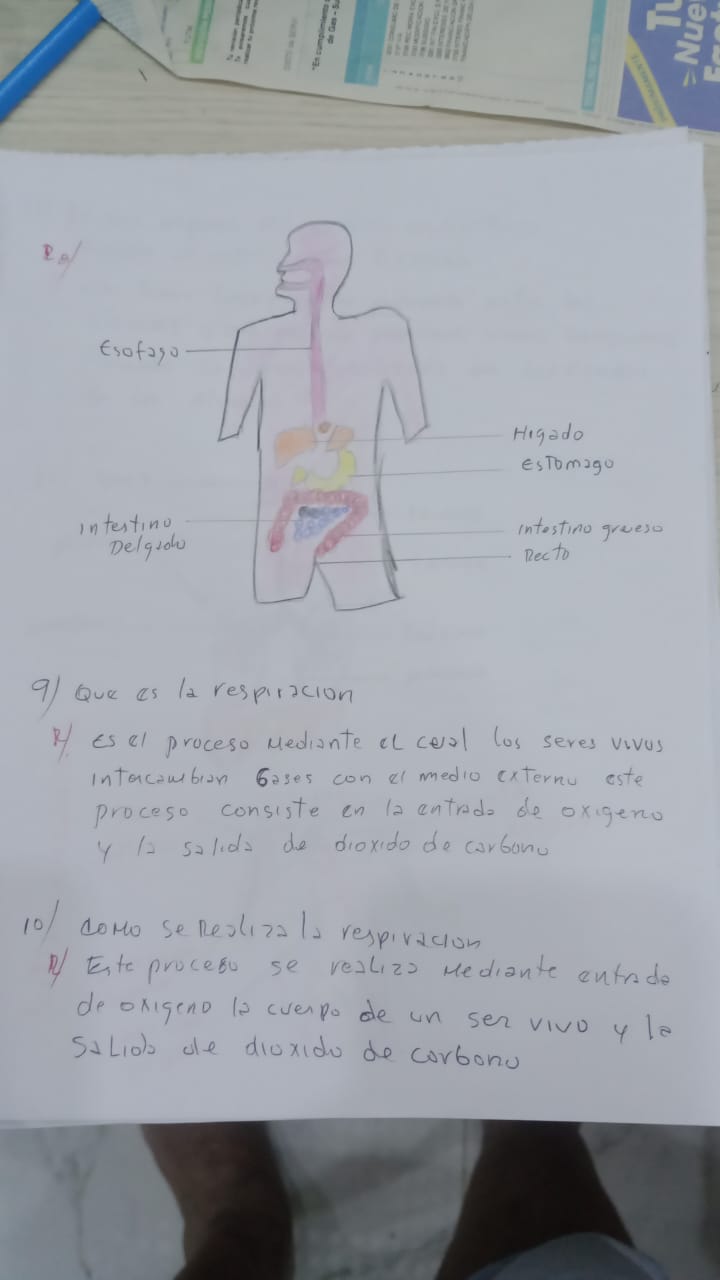 Tu
>Nue
"En cumplimiento
de Gas - Su
R8/
Esofago
Higado
Estomago
Intestino
Delgado
Intestino grueso
Recto
9/ Que es la respiracion
R/ es el proceso mediante el cual los seres vivos
intercambian Gases con el medio externo este
proceso consiste en la entrada de oxigeno
y la salida de dioxido de carbono
10/ como se realiza la respiracion
R/ Este proceso se realiza mediante entrada
de oxigeno la cuerpo de un ser vivo y la
salida de dioxido de carbono